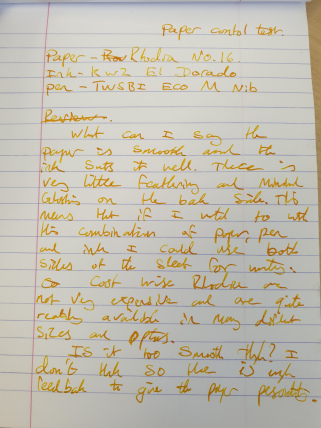 Paper control test.
Paper - Rhodia No. 16.
Ink - KWZ El Dorado
pen - TWSBI Eco M Nib
Review.
What can I say the
paper is smooth and the
ink suits it well. There is
very little feathering and minimal
ghosting on the back side. This
means that if I wanted to with
this combination of paper, pen
and ink I could use both
sides of the sheet for writing.
So cost wise Rhodia are
not very expensive and are quite
readily available in many different
sizes and options.
Is it too smooth though? I
don't think so there is enough
feedback to give the paper personality.